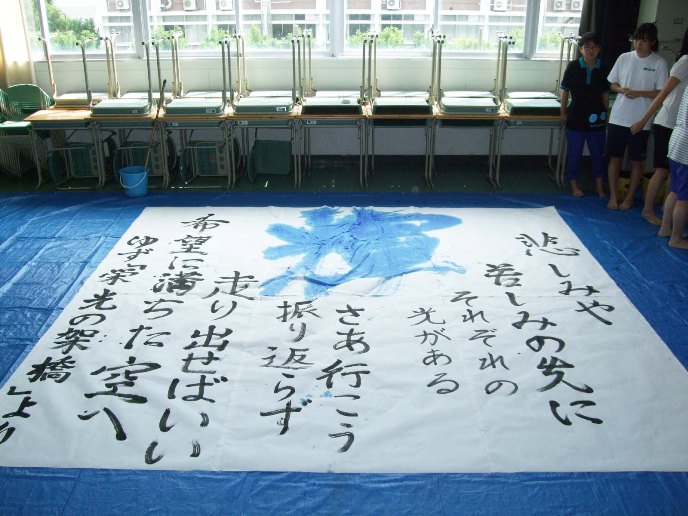 悲しみや
苦しみの先に
それぞれの
光がある
さあ行こう
振り返らず
走り出せばいい
希望に満ちた空へ
ゆず「栄光の架橋」より